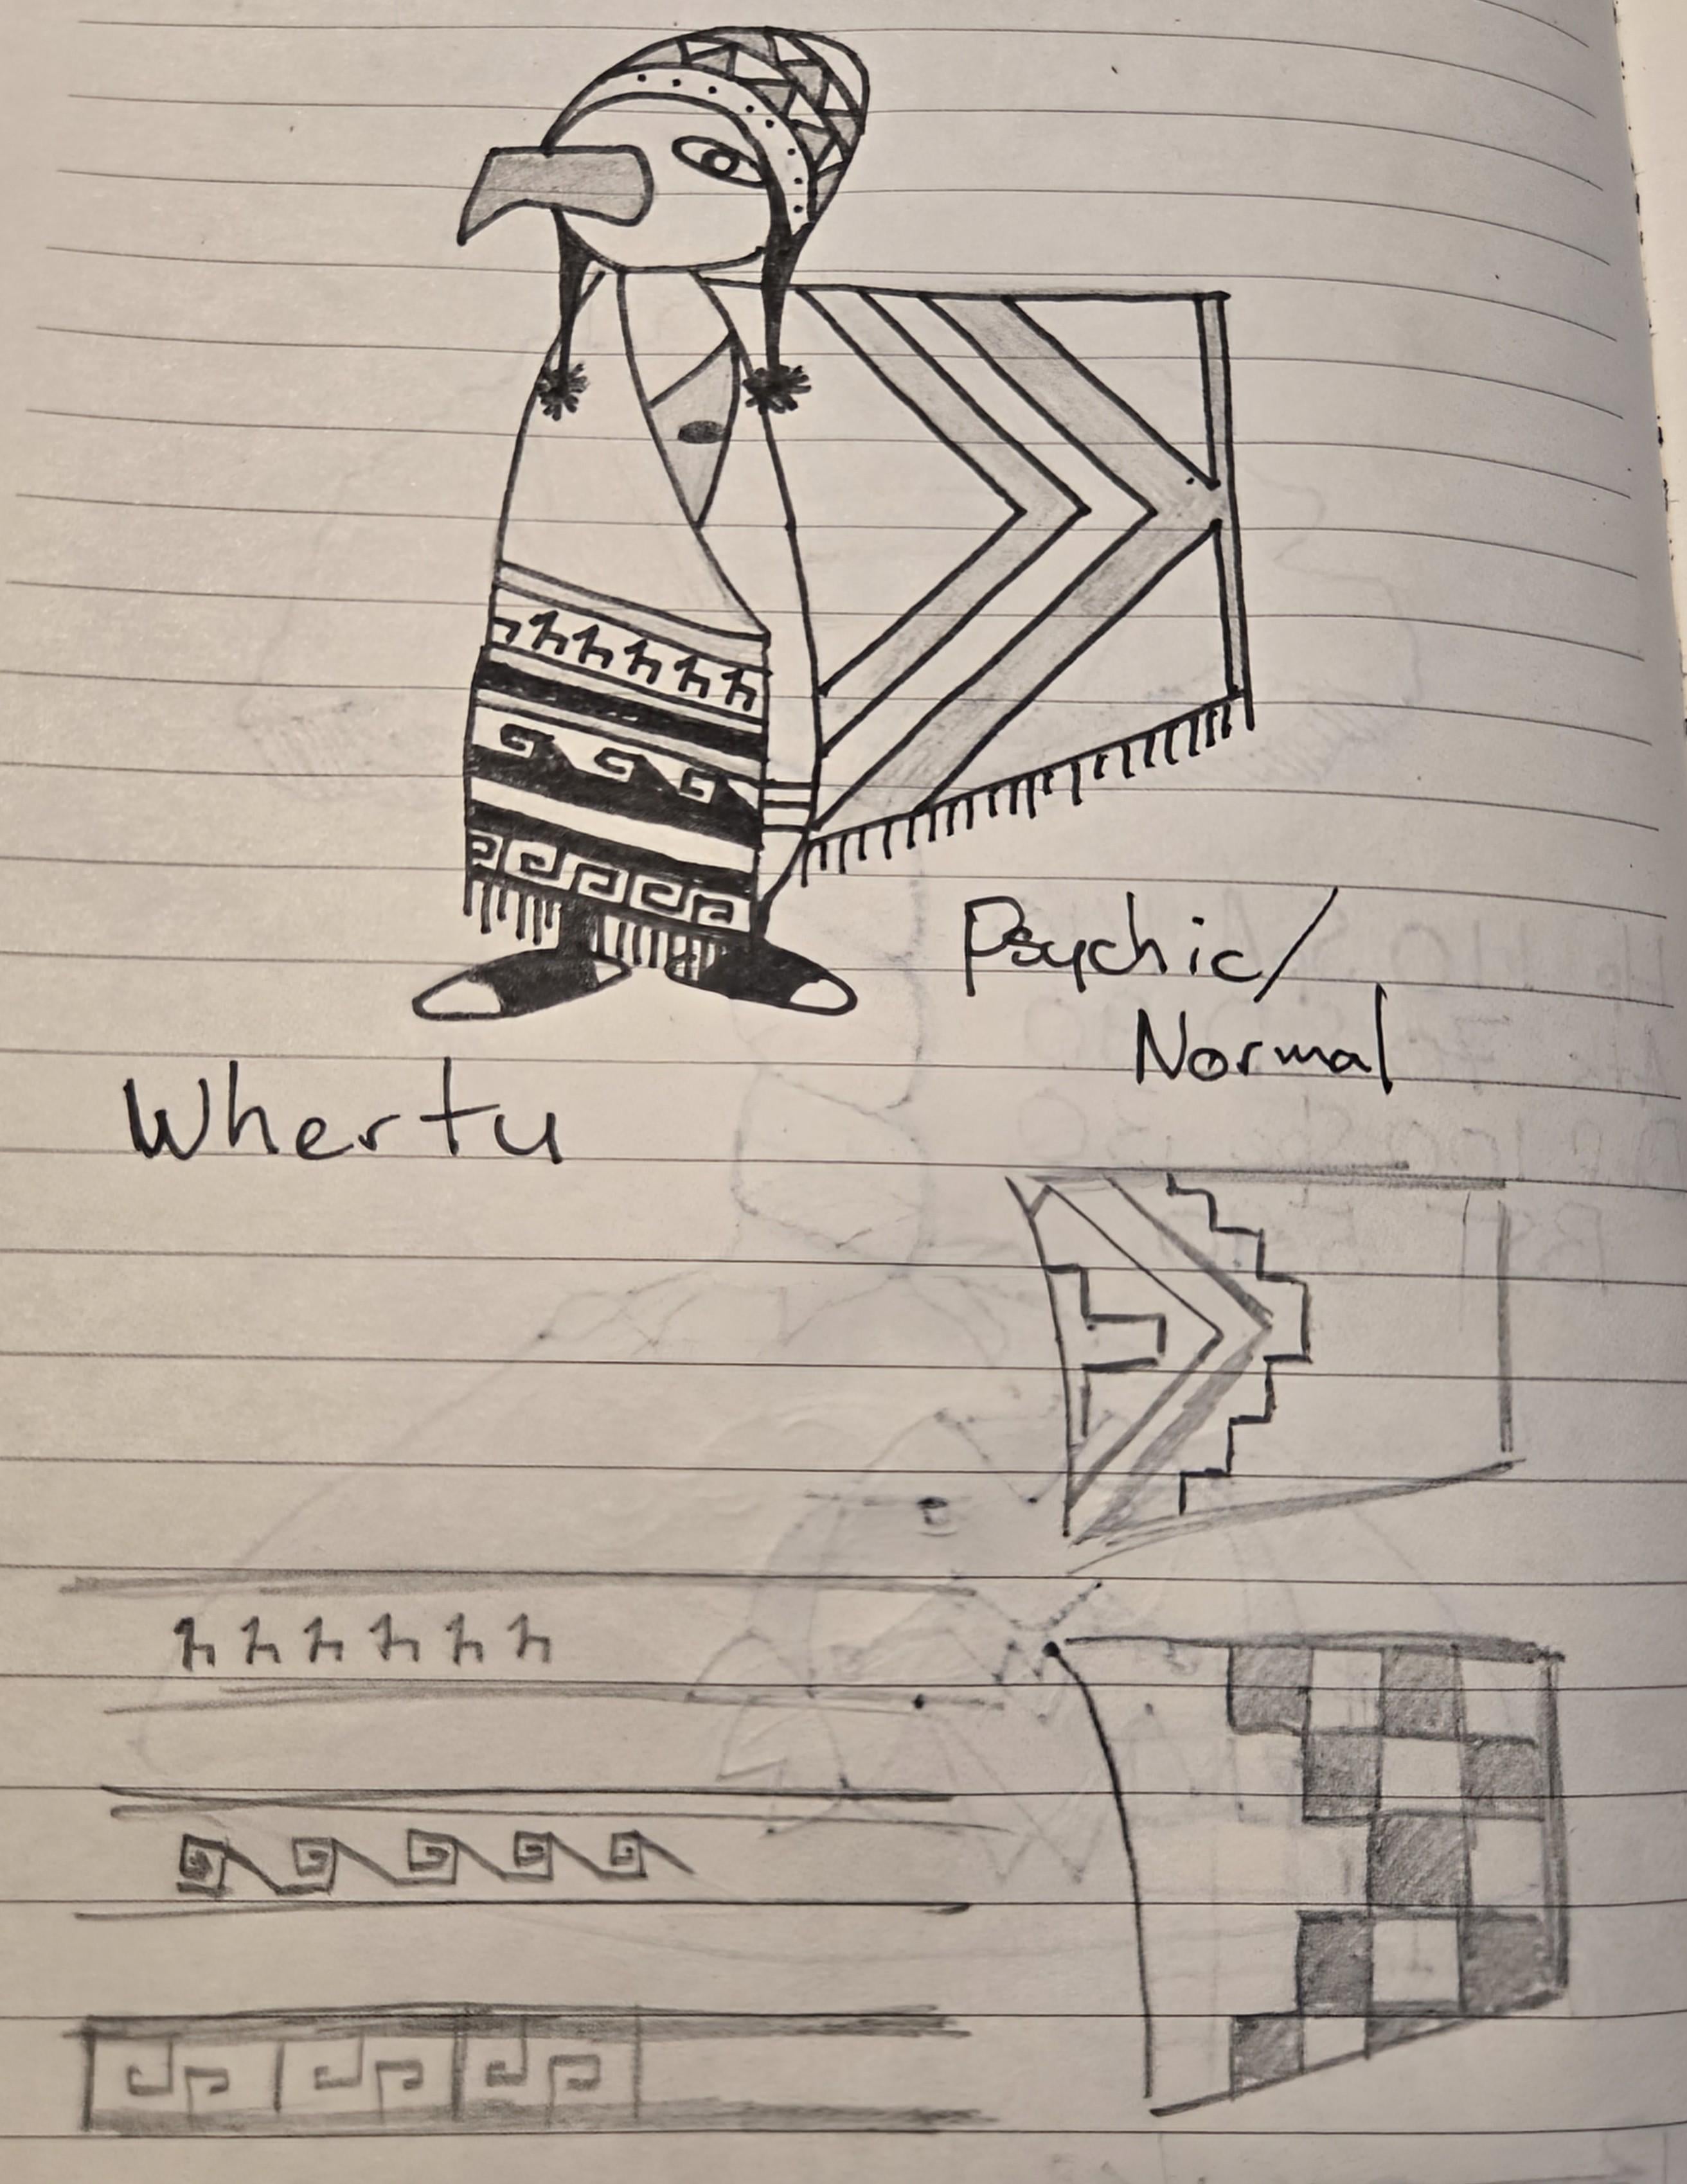 Psychic/
Normal
Whertu